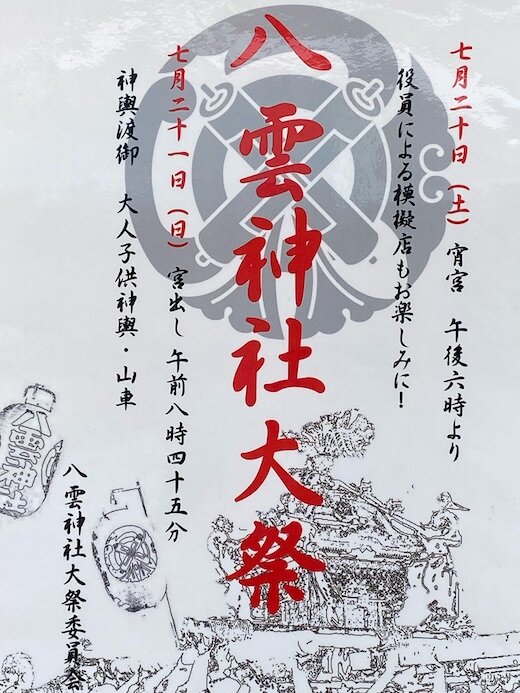 七月二十日（土）　宵宮　午後六時より
役員による模擬店もお楽しみに！
八雲神社大祭
七月二十一日（日）　宮出し　午前八時四十五分
神輿渡御　大人子供神輿・山車
八雲神社
八雲神社大祭委員会